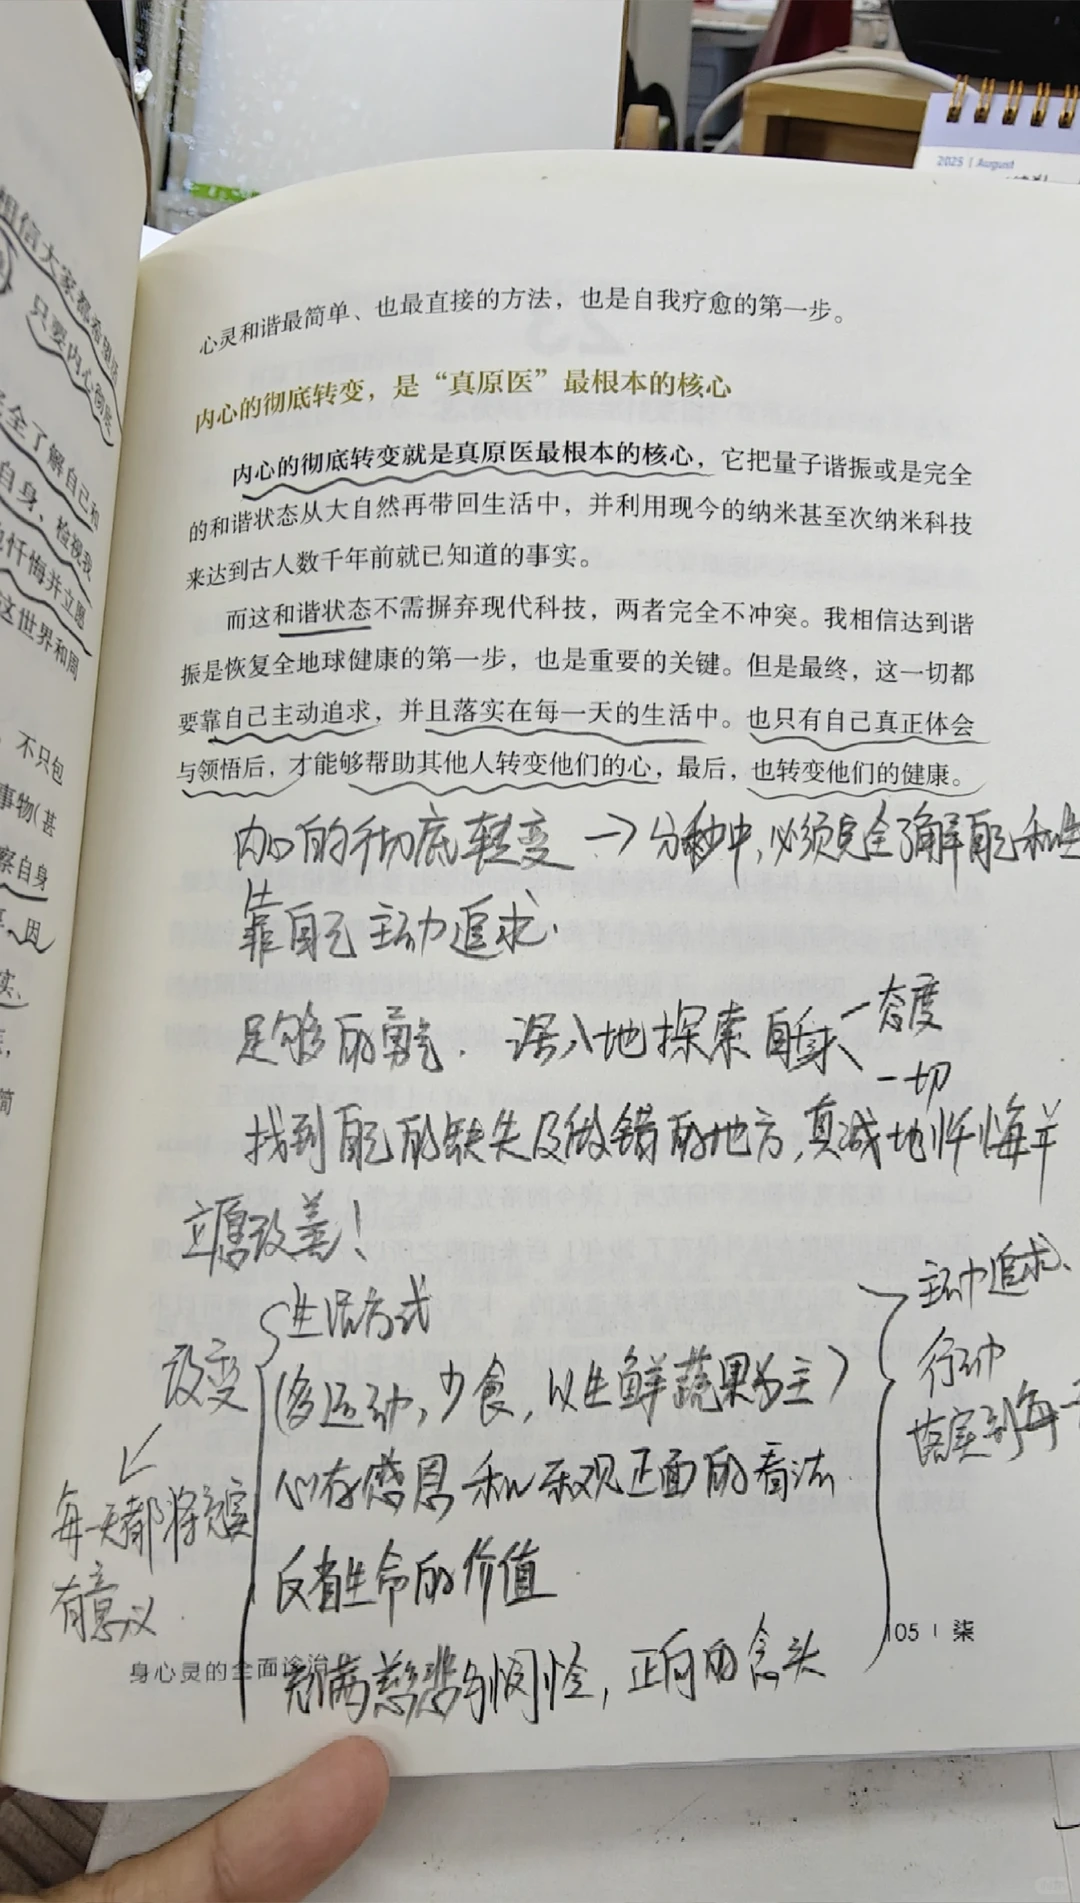 2025 | August
相信大家都希望
只要内心彻底
完全了解自己和
自身、检视我
忏悔并立愿
这世界和周
，不只包
事物(甚
察自身
因
实、
简
心灵和谐最简单、也最直接的方法，也是自我疗愈的第一步。
内心的彻底转变，是“真原医”最根本的核心
内心的彻底转变就是真原医最根本的核心，它把量子谐振或是完全
的和谐状态从大自然再带回生活中，并利用现今的纳米甚至次纳米科技
来达到古人数千年前就已知道的事实。
而这和谐状态不需摒弃现代科技，两者完全不冲突。我相信达到谐
振是恢复全地球健康的第一步，也是重要的关键。但是最终，这一切都
要靠自己主动追求，并且落实在每一天的生活中。也只有自己真正体会
与领悟后，才能够帮助其他人转变他们的心，最后，也转变他们的健康。
内心的彻底转变 → 分秒中，必须完全了解自己和
靠自己主动追求.
足够的勇气. 深入地探索自身 态度
一切
找到自己的缺失及做错的地方，真诚地忏悔并
立愿改善！
改变
生活方式
(多运动，少食，以生鲜蔬果为主)
心存感恩和乐观正面的看法
反省生命的价值
充满慈悲与怜悯，正向的念头
主动追求、
行动
落实到每一
每一天都将充实
有意义
身心灵的全面诊治
105 | 柒